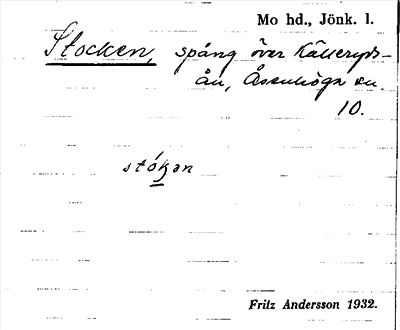 Mo hd., Jönk. l.
Stocken, spång över Källeryds-
ån, Åsenhöga sn.
10.
stókan
Fritz Andersson 1932.